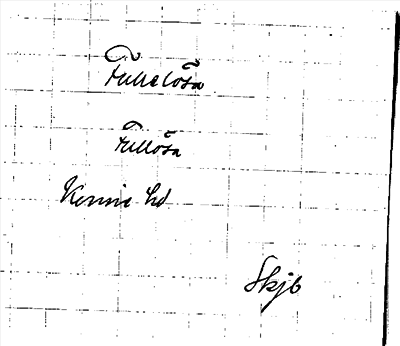 Fullelösa
Fullösa
Kinne hd
Skjb